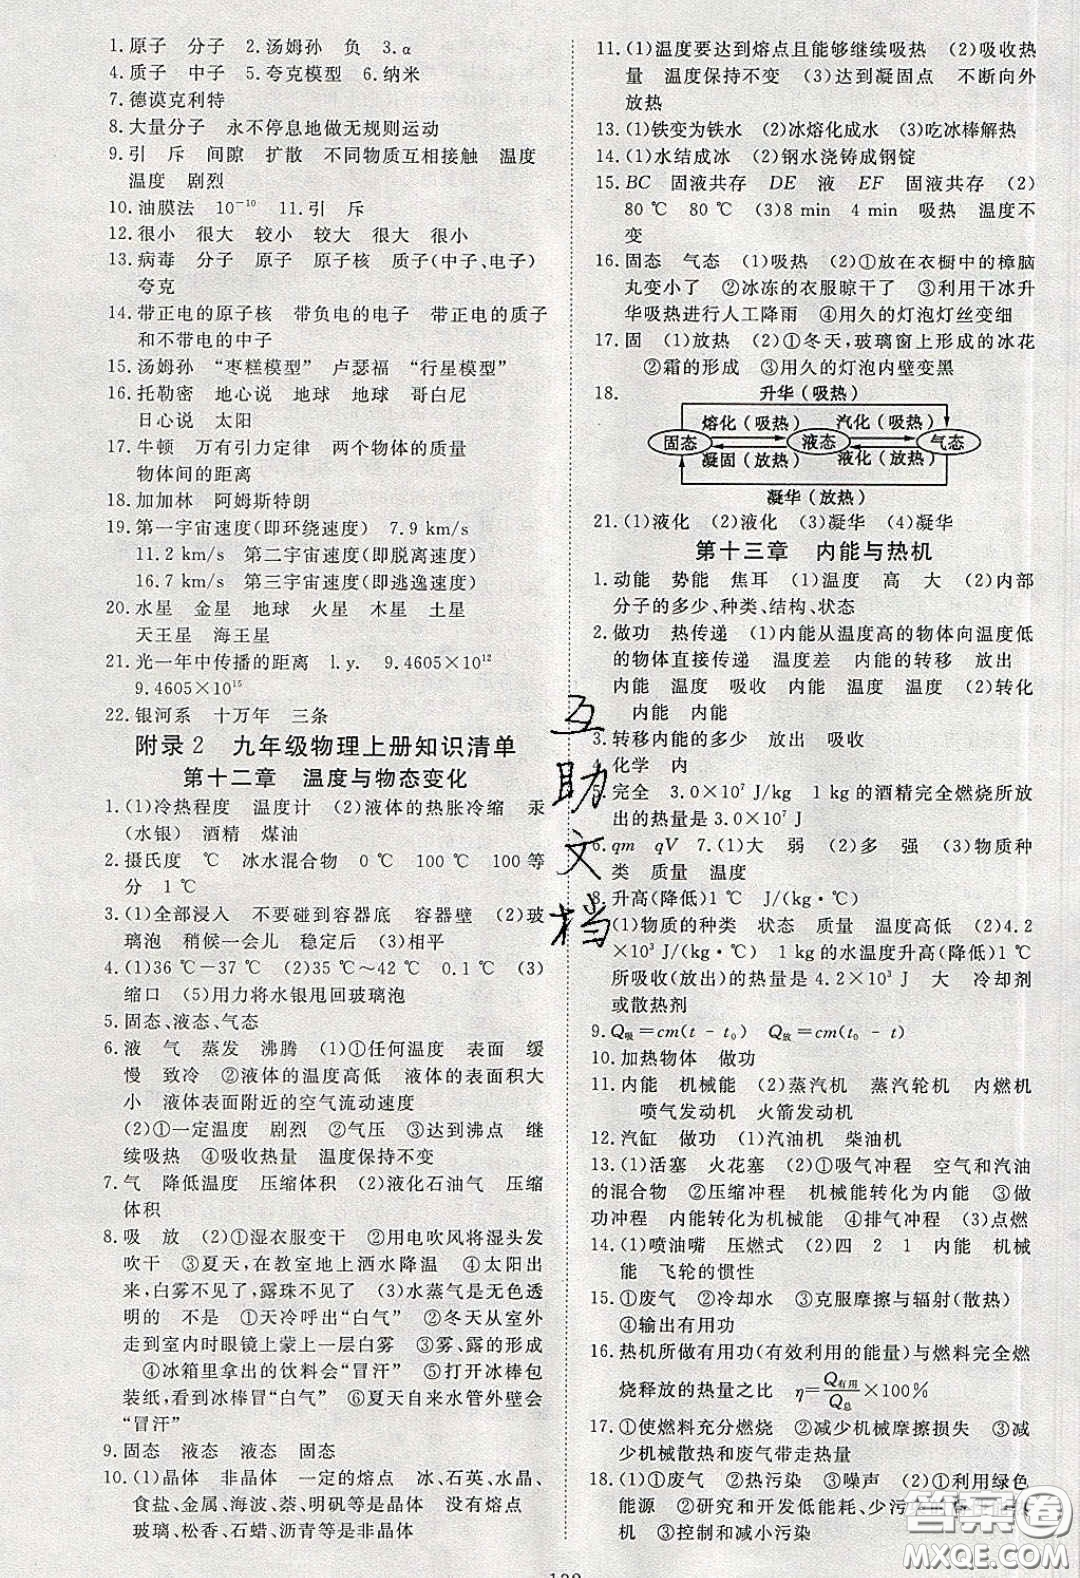 1.原子 分子 2.汤姆孙 负 3.α
4.质子 中子 5.夸克模型 6.纳米
7.德谟克利特
8.大量分子 永不停息地做无规则运动
9.引 斥 间隙 扩散 不同物质互相接触 温度
温度 剧烈
10.油膜法 10⁻¹⁰ 11.引 斥
12.很小 很大 较小 较大 很大 很小
13.病毒 分子 原子 原子核 质子(中子、电子)
夸克
14.带正电的原子核 带负电的电子 带正电的质子
和不带电的中子
15.汤姆孙 “枣糕模型” 卢瑟福 “行星模型”
16.托勒密 地心说 地球 地球 哥白尼
日心说 太阳
17.牛顿 万有引力定律 两个物体的质量
物体间的距离
18.加加林 阿姆斯特朗
19.第一宇宙速度(即环绕速度) 7.9 km/s
11.2 km/s 第二宇宙速度(即脱离速度)
16.7 km/s 第三宇宙速度(即逃逸速度)
20.水星 金星 地球 火星 木星 土星
天王星 海王星
21.光一年中传播的距离 l.y. 9.4605×10¹²
9.4605×10¹⁵
22.银河系 十万年 三条
附录2 九年级物理上册知识清单
第十二章 温度与物态变化
1.(1)冷热程度 温度计 (2)液体的热胀冷缩 汞
(水银) 酒精 煤油
2.摄氏度 ℃ 冰水混合物 0 ℃ 100 ℃ 100等
分 1 ℃
3.(1)全部浸入 不要碰到容器底 容器壁 (2)玻
璃泡 稍候一会儿 稳定后 (3)相平
4.(1)36 ℃－37 ℃ (2)35 ℃～42 ℃ 0.1 ℃ (3)
缩口 (5)用力将水银甩回玻璃泡
5.固态、液态、气态
6.液 气 蒸发 沸腾 (1)①任何温度 表面 缓
慢 致冷 ②液体的温度高低 液体的表面积大
小 液体表面附近的空气流动速度
(2)①一定温度 剧烈 ②气压 ③达到沸点 继
续吸热 ④吸收热量 温度保持不变
7.气 降低温度 压缩体积 (2)液化石油气 压缩
体积
8.吸 放 (2)①湿衣服变干 ②用电吹风将湿头发
吹干 ③夏天,在教室地上洒水降温 ④太阳出
来,白雾不见了,露珠不见了 (3)水蒸气是无色透
明的 不是 ①天冷呼出“白气” ②冬天从室外
走到室内时眼镜上蒙上一层白雾 ③雾、露的形成
④冰箱里拿出的饮料会“冒汗” ⑤打开冰棒包
装纸,看到冰棒冒“白气” ⑥夏天自来水管外壁会
“冒汗”
9.固态 液态 液态 固态
10.(1)晶体 非晶体 一定的熔点 冰、石英、水晶、
食盐、金属、海波、萘、明矾等是晶体 没有熔点
玻璃、松香、石蜡、沥青等是非晶体
11.(1)温度要达到熔点且能够继续吸热 (2)吸收热
量 温度保持不变 (3)达到凝固点 不断向外
放热
13.(1)铁变为铁水 (2)冰熔化成水 (3)吃冰棒解热
14.(1)水结成冰 (2)钢水浇铸成钢锭
15.BC 固液共存 DE 液 EF 固液共存 (2)
80 ℃ 80 ℃ (3)8 min 4 min 吸热 温度不
变
16.固态 气态 (1)吸热 (2)①放在衣橱中的樟脑
丸变小了 ②冰冻的衣服晾干了 ③利用干冰升
华吸热进行人工降雨 ④用久的灯泡灯丝变细
17.固 (1)放热 (2)①冬天,玻璃窗上形成的冰花
②霜的形成 ③用久的灯泡内壁变黑
18.
升华(吸热)
熔化(吸热) 汽化(吸热)
固态 液态 气态
凝固(放热) 液化(放热)
凝华(放热)
21.(1)液化 (2)液化 (3)凝华 (4)凝华
第十三章 内能与热机
1.动能 势能 焦耳 (1)温度 高 大 (2)内部
分子的多少、种类、结构、状态
2.做功 热传递 (1)内能从温度高的物体向温度低
的物体直接传递 温度差 内能的转移 放出
内能 温度 吸收 内能 温度 温度 (2)转化
内能 内能
3.转移内能的多少 放出 吸收
4.化学 内
5.完全 3.0×10⁷ J/kg 1 kg的酒精完全燃烧所放
出的热量是3.0×10⁷ J
6.qm qV 7.(1)大 弱 (2)多 强 (3)物质种
类 质量 温度
8.升高(降低)1 ℃ J/(kg·℃)
(1)物质的种类 状态 质量 温度高低 (2)4.2
×10³ J/(kg·℃) 1 kg的水温度升高(降低)1 ℃
所吸收(放出)的热量是4.2×10³ J 大 冷却剂
或散热剂
9.Q吸=cm(t－t₀) Q放=cm(t₀－t)
10.加热物体 做功
11.内能 机械能 (2)蒸汽机 蒸汽轮机 内燃机
喷气发动机 火箭发动机
12.汽缸 做功 (1)汽油机 柴油机
13.(1)活塞 火花塞 (2)①吸气冲程 空气和汽油
的混合物 ②压缩冲程 机械能转化为内能 ③做
功冲程 内能转化为机械能 ④排气冲程 (3)点燃
14.(1)喷油嘴 压燃式 (2)四 2 1 内能 机械
能 飞轮的惯性
15.①废气 ②冷却水 ③克服摩擦与辐射(散热)
④输出有用功
16.热机所做有用功(有效利用的能量)与燃料完全燃
烧释放的热量之比 η=Q有用/Q总×100%
17.①使燃料充分燃烧 ②减少机械摩擦损失 ③减
少机械散热和废气带走热量
18.(1)①废气 ②热污染 ③噪声 (2)①利用绿色
能源 ②研究和开发低能耗、少污
机 ③控制和减小污染
互助文档
答案圈
MXQE.COM